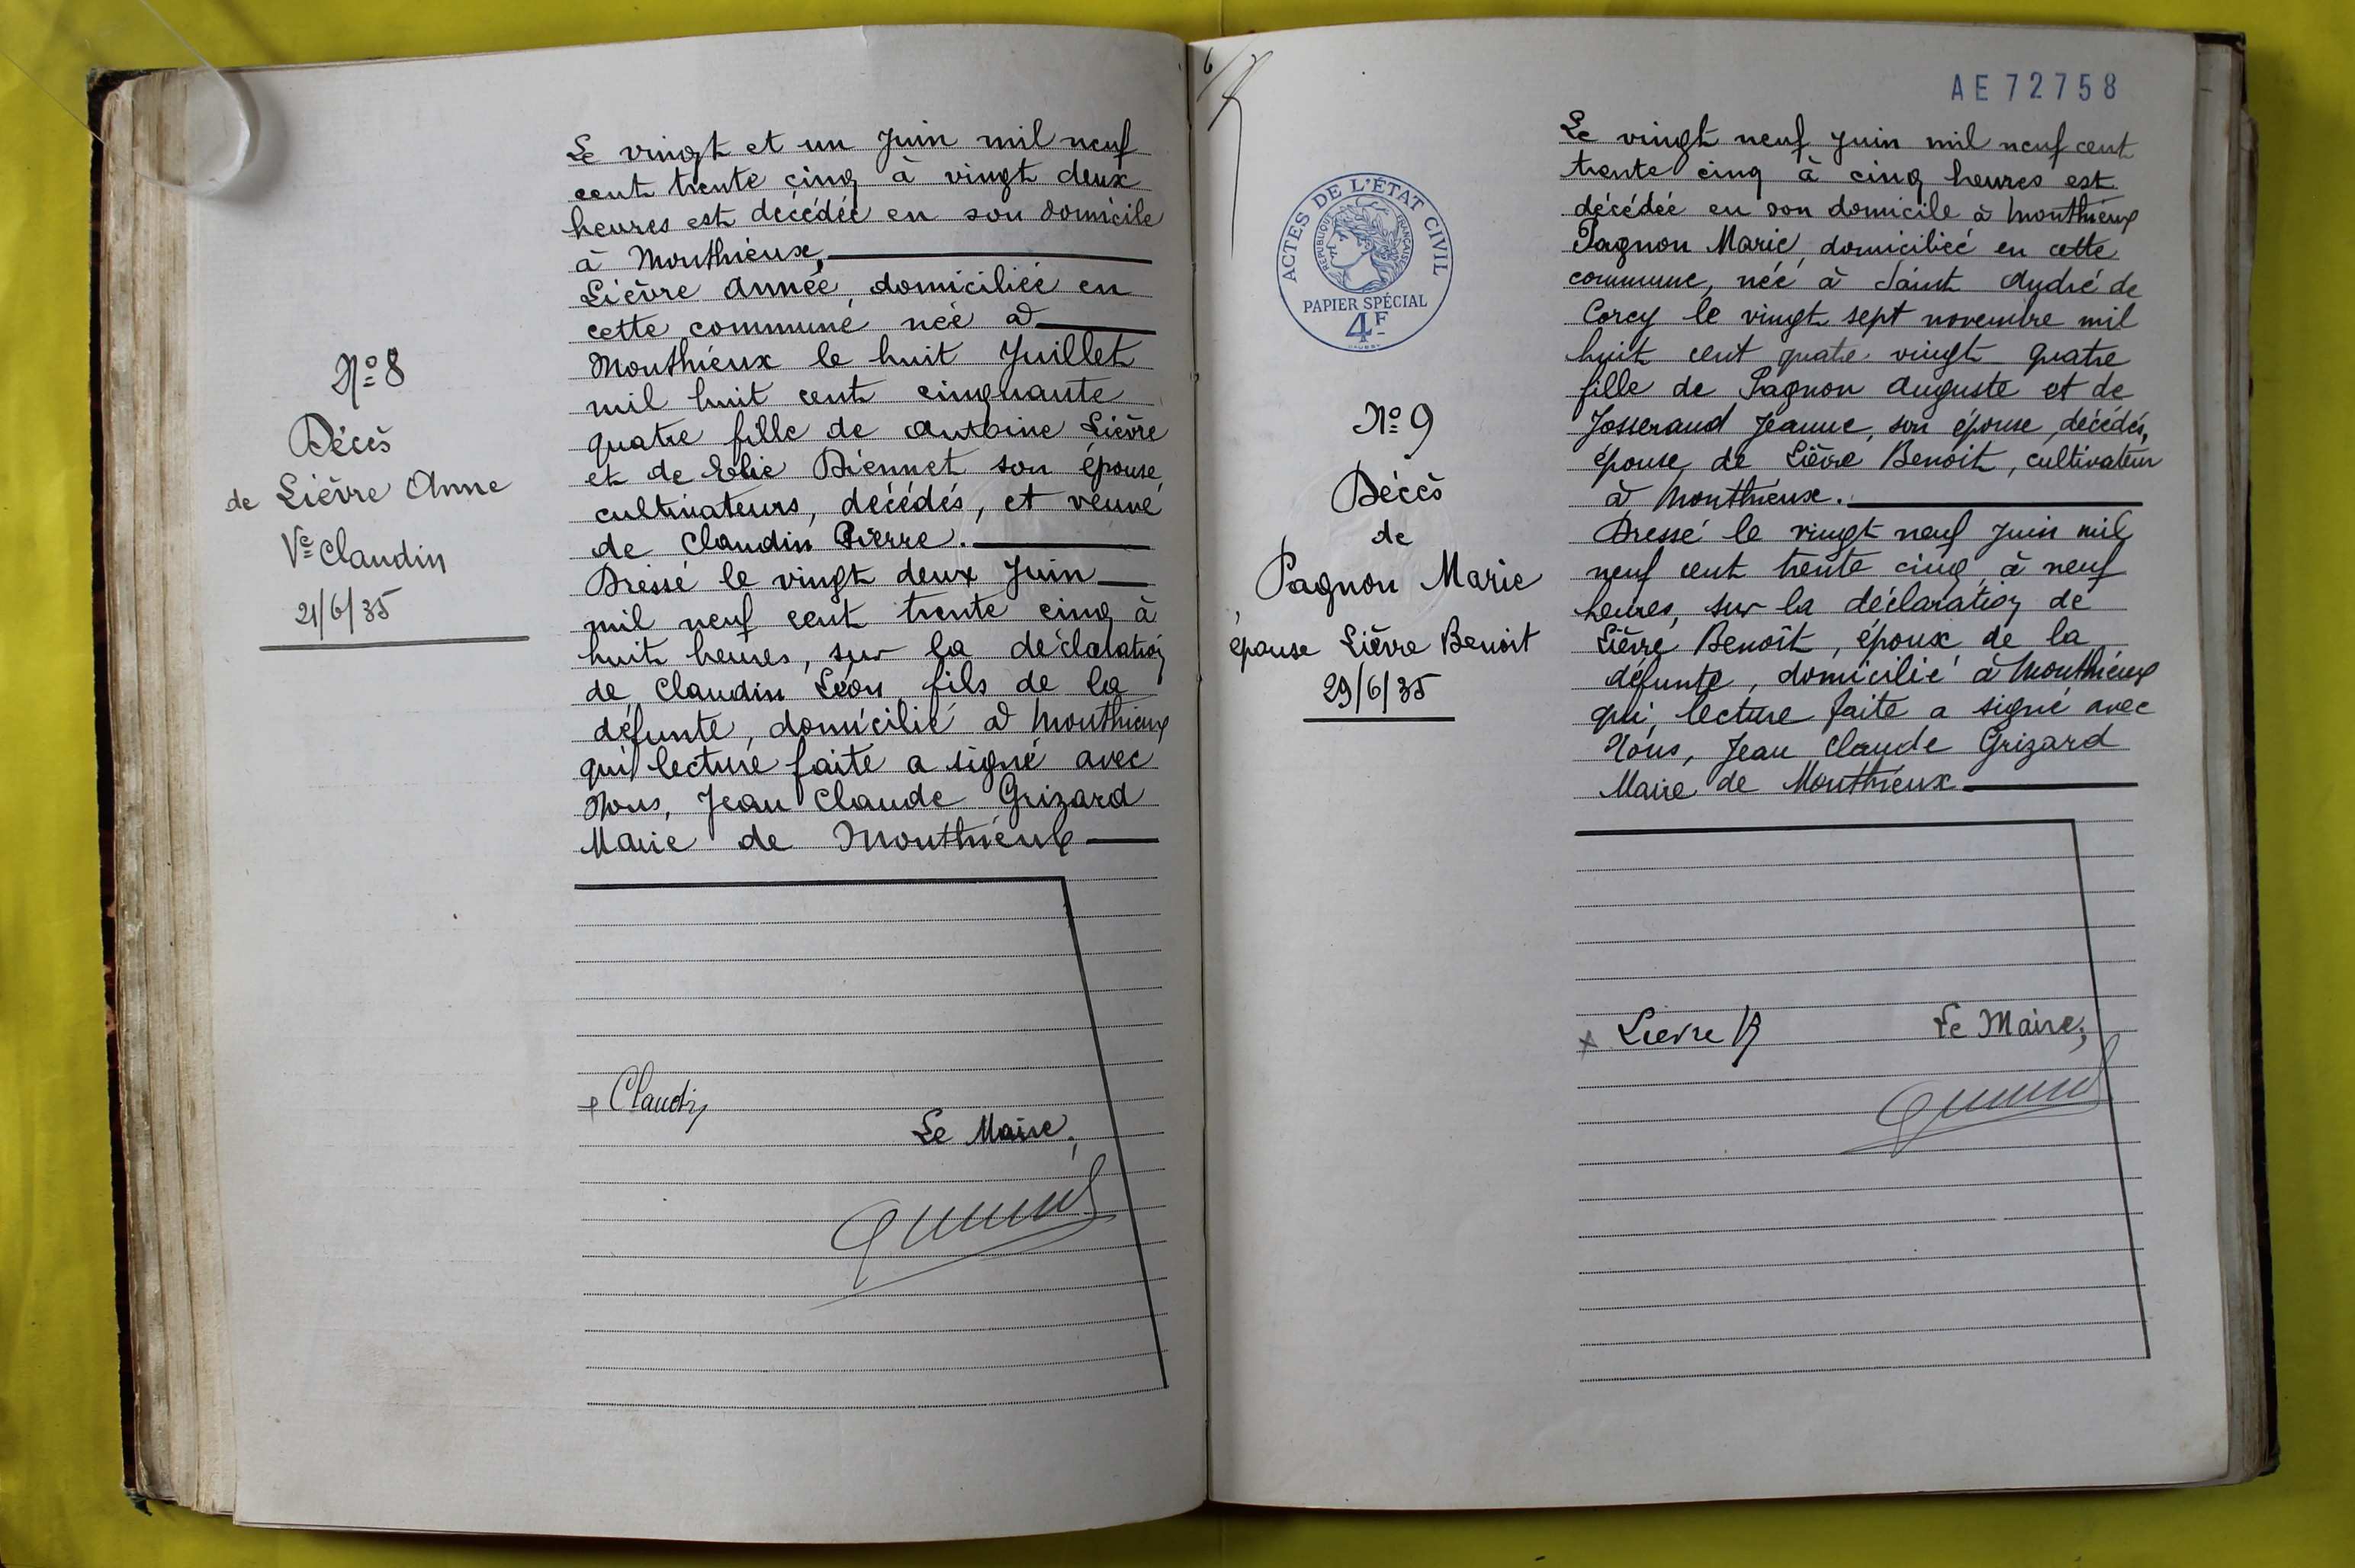 N° 8
Décès
de Lièvre Anne
Ve Claudin
21/6/35
Le vingt et un Juin mil neuf
cent trente cinq à vingt deux
heures est décédée en son domicile
à Monthieux,
Lièvre Année, domiciliée en
cette commune née à
Monthieux le huit Juillet
mil huit cent cinquante
quatre fille de Antoine Lièvre
et de Diennet son épouse,
cultivateurs, décédés, et veuve
de Claudin Pierre.
Dressé le vingt deux Juin
mil neuf cent trente cinq à
huit heures, sur la déclaration
de Claudin Léon, fils de la
défunte, domicilié à Monthieux
qui lecture faite a signé avec
Nous, Jean Claude Grizard
Maire de Monthieux
Claudin
Le Maire,
6
AE 72758
ACTES DE L'ÉTAT CIVIL
RÉPUBLIQUE FRANÇAISE
PAPIER SPÉCIAL
4F
N° 9
Décès
de
Pagnon Marie
épouse Lièvre Benoit
29/6/35
Le vingt neuf Juin mil neuf cent
trente cinq à cinq heures est
décédée en son domicile à Monthieux
Pagnon Marie, domiciliée en cette
commune, née à Saint André de
Corcy le vingt sept novembre mil
huit cent quatre vingt quatre
fille de Pagnon Auguste et de
Josserand Jeanne, son épouse, décédés,
épouse de Lièvre Benoit, cultivateur
à Monthieux.
Dressé le vingt neuf Juin mil
neuf cent trente cinq à neuf
heures, sur la déclaration de
Lièvre Benoît, époux de la
défunte, domicilié à Monthieux
qui, lecture faite a signé avec
Nous, Jean Claude Grizard
Maire de Monthieux
Lievre B
Le Maire,